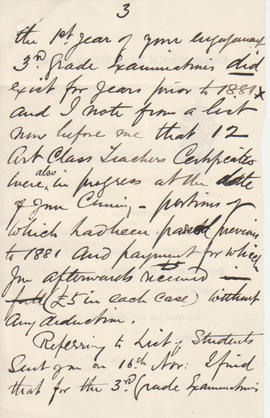 3
the 1st. year of your engagement
3rd. grade Examinations did
exist for years prior to 1881 x
and I note from a list
now before me that 12
Art Class Teachers Certificates
were, also in progress at the date
of your Coming — portions of
which had been passed previous
to 1881 and payment for which
you afterwards received —
(£5 in each case) without
any deduction.
Referring to List of Students
Sent you on 16th Nov: I find
that for the 3rd. Grade Examinations